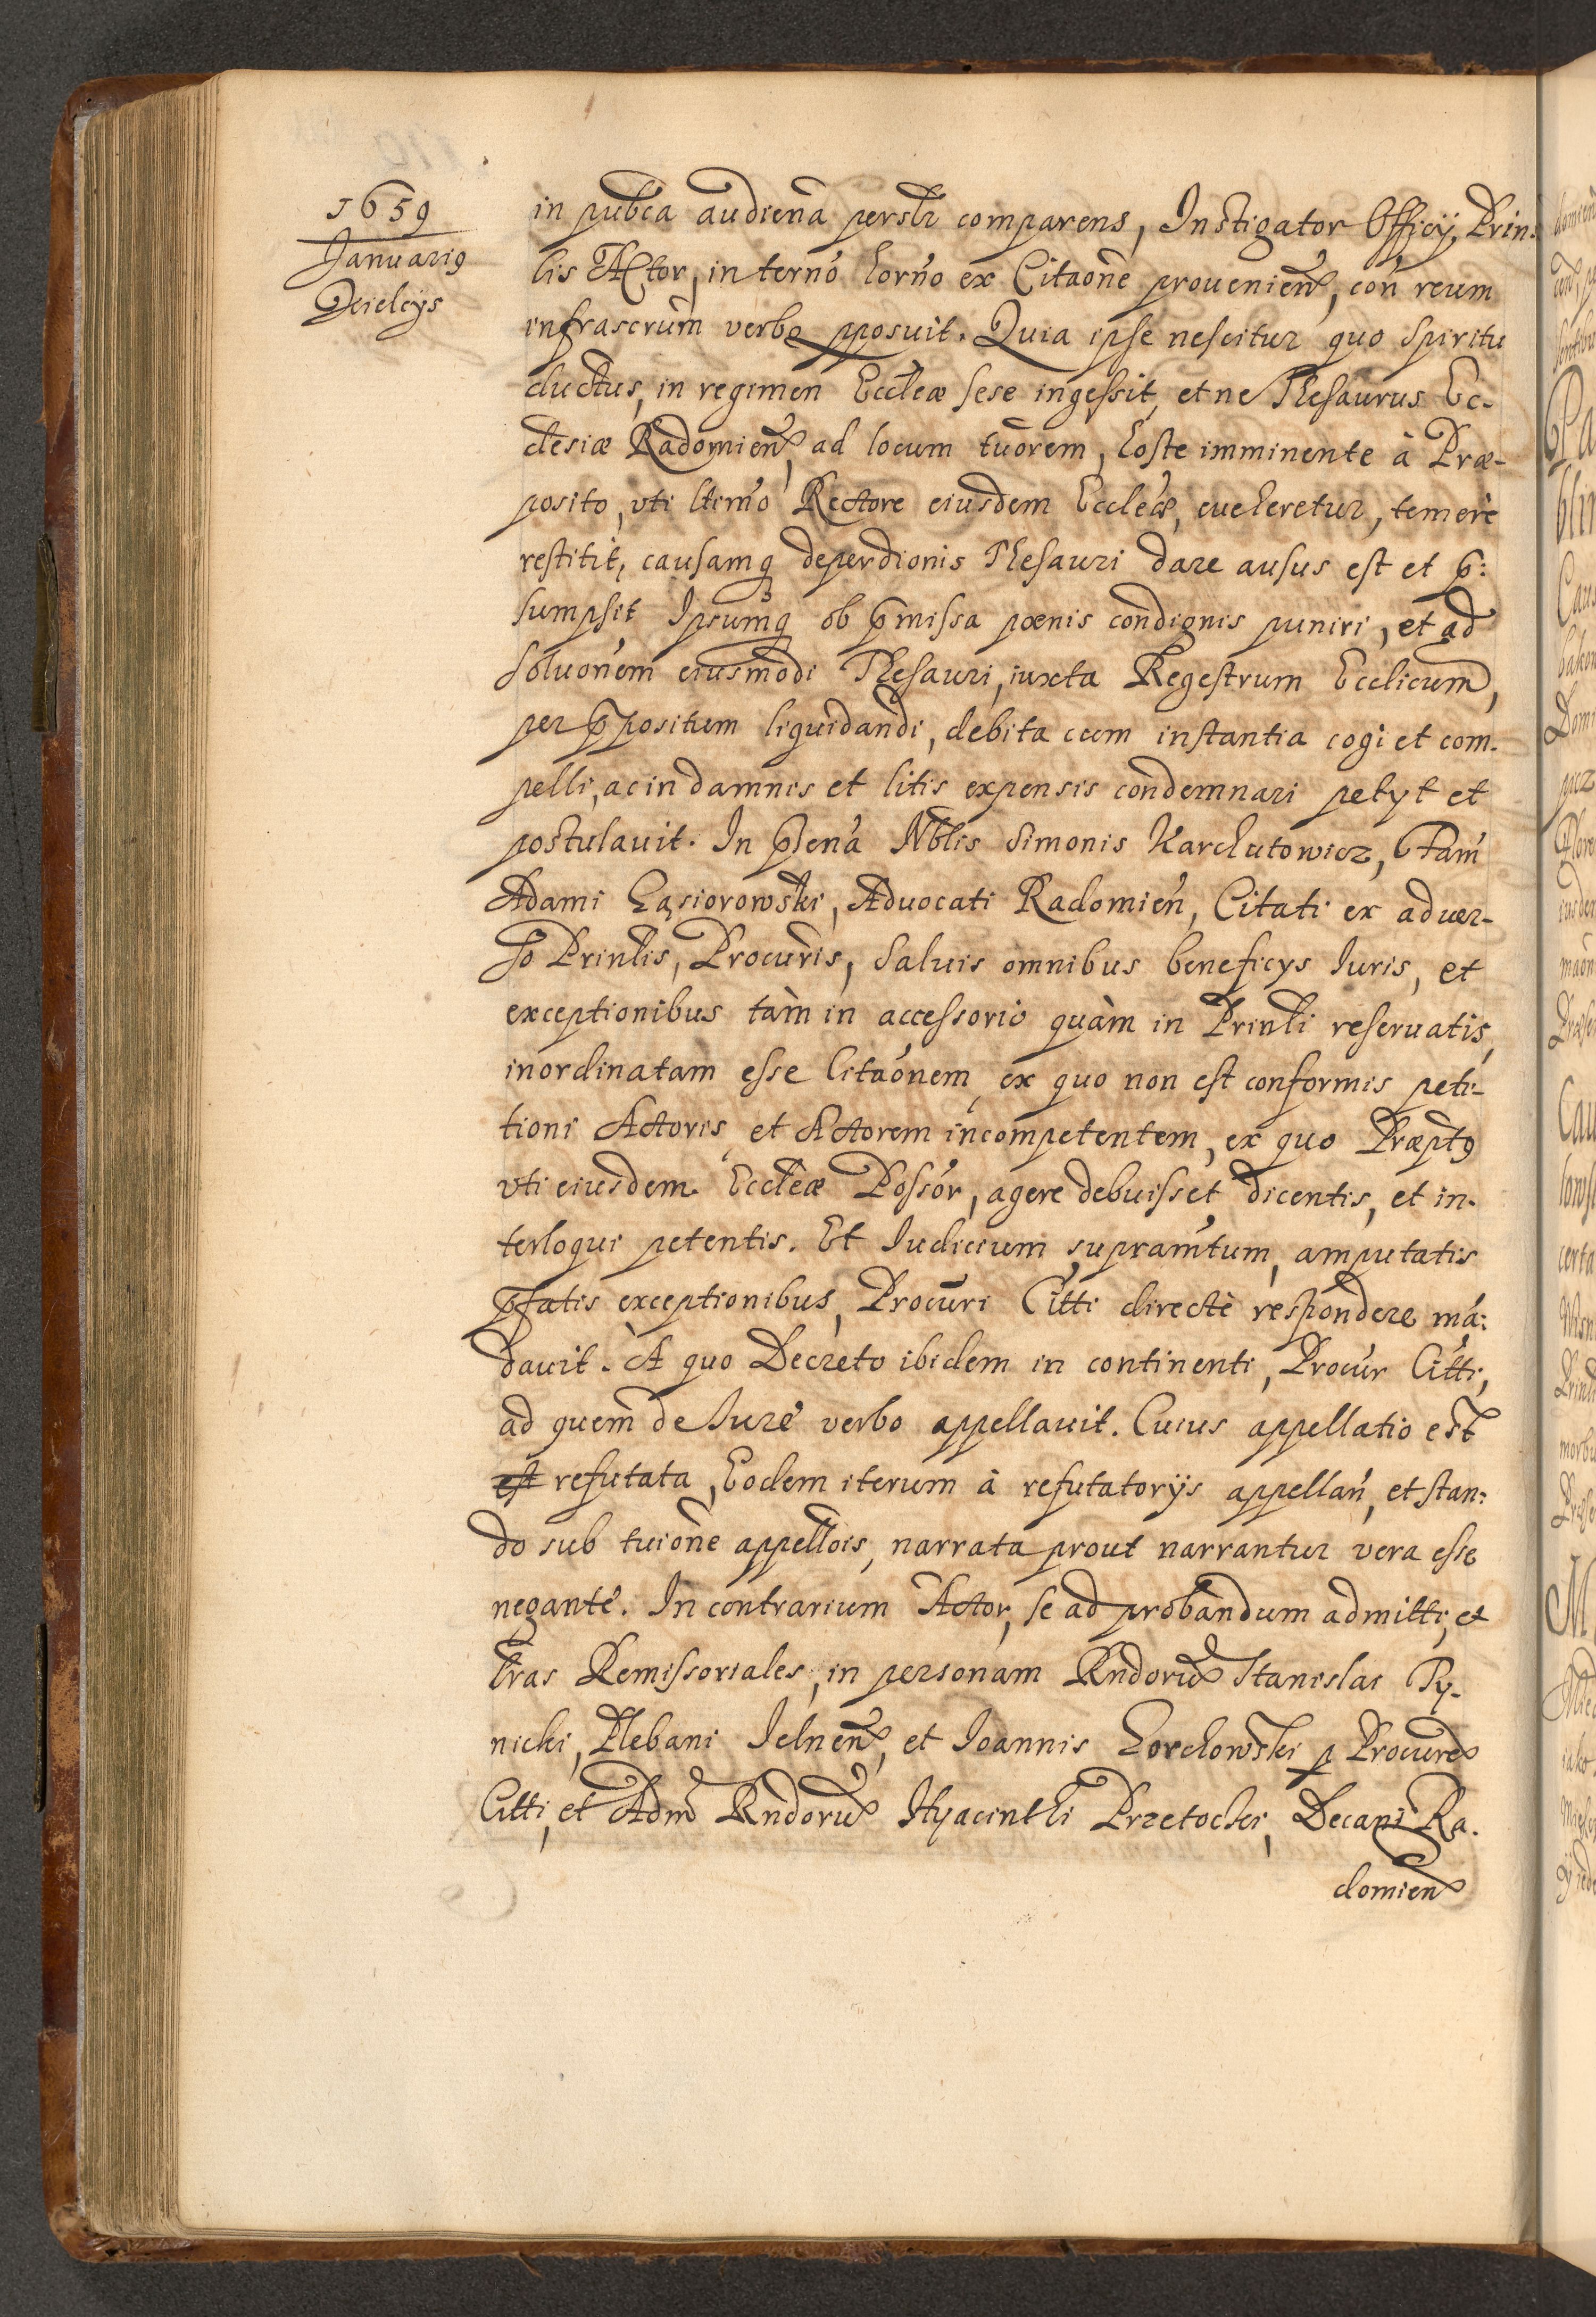 1659
Januarig
Kielcÿs
in pubca audiena persłr comparens, Instigator Officÿ, Prin.
lis Actor, in terno horno ex Citaone prouenien, con reum
infrascrum verbo pposuit. Quia ipse nescitur quo Spiritu
ductus, in regimen Eccleæ sese ingessit, et ne Thesaurus Ec-
clesiæ Radomien, ad locum tuorem, hoste imminente à Præ-
posito, vti ltimo Rectore eiusdem Eccleæ, eueheretur, temerè
restitit, causamq deperdionis Thesauri dare ausus est et p:
sumpsit Ipsumq ob pmissa pœnis condignis puniri, et ad
Soluonem eiusmodi Thesauri, iuxta Regestrum Ecclicum,
per ppositum liquidandi, debita cum instantia cogi et com-
pelli, ac in damnis et litis expensis condemnari petyt et
postulauit. In psena Nblis Simonis Karchutowicz, Fam
Adami Gąsiorowski, Aduocati Radomien, Citati ex aduer-
so Prinlis, Procuris, Saluis omnibus beneficys Iuris, et
exceptionibus tàm in accessorio quàm in Prinli reseruatis,
inordinatam esse Citaonem, ex quo non est conformis peti-
tioni Actoris, et Actorem incompetentem, ex quo Præptg
vti eiusdem Eccleæ Possor, agere debuisset, dicentis, et in-
terloqui petentis. Et Iudicium supramtum, amputatis
pfatis exceptionibus, Procuri Citti directè respondere ma:
dauit. A quo Decreto ibidem in continenti, Procur Citti,
ad quem de Iure verbo appellauit. Cuius appellatio est
est refutata, Eodem iterum à refutatorÿs appellan, et stan:
do sub tuione appellois, narrata prout narrantur vera esse
negante. In contrarium Actor, se ad probandum admitti, et
lras Remissoriales, in personam Rndoru Stanislai Py-
nicki, Plebani Jelnen, et Joannis Gorchowski p Procure
Citti, et Adm Rndoru Hyacinthi Przetocki, Decani Ra-
domien